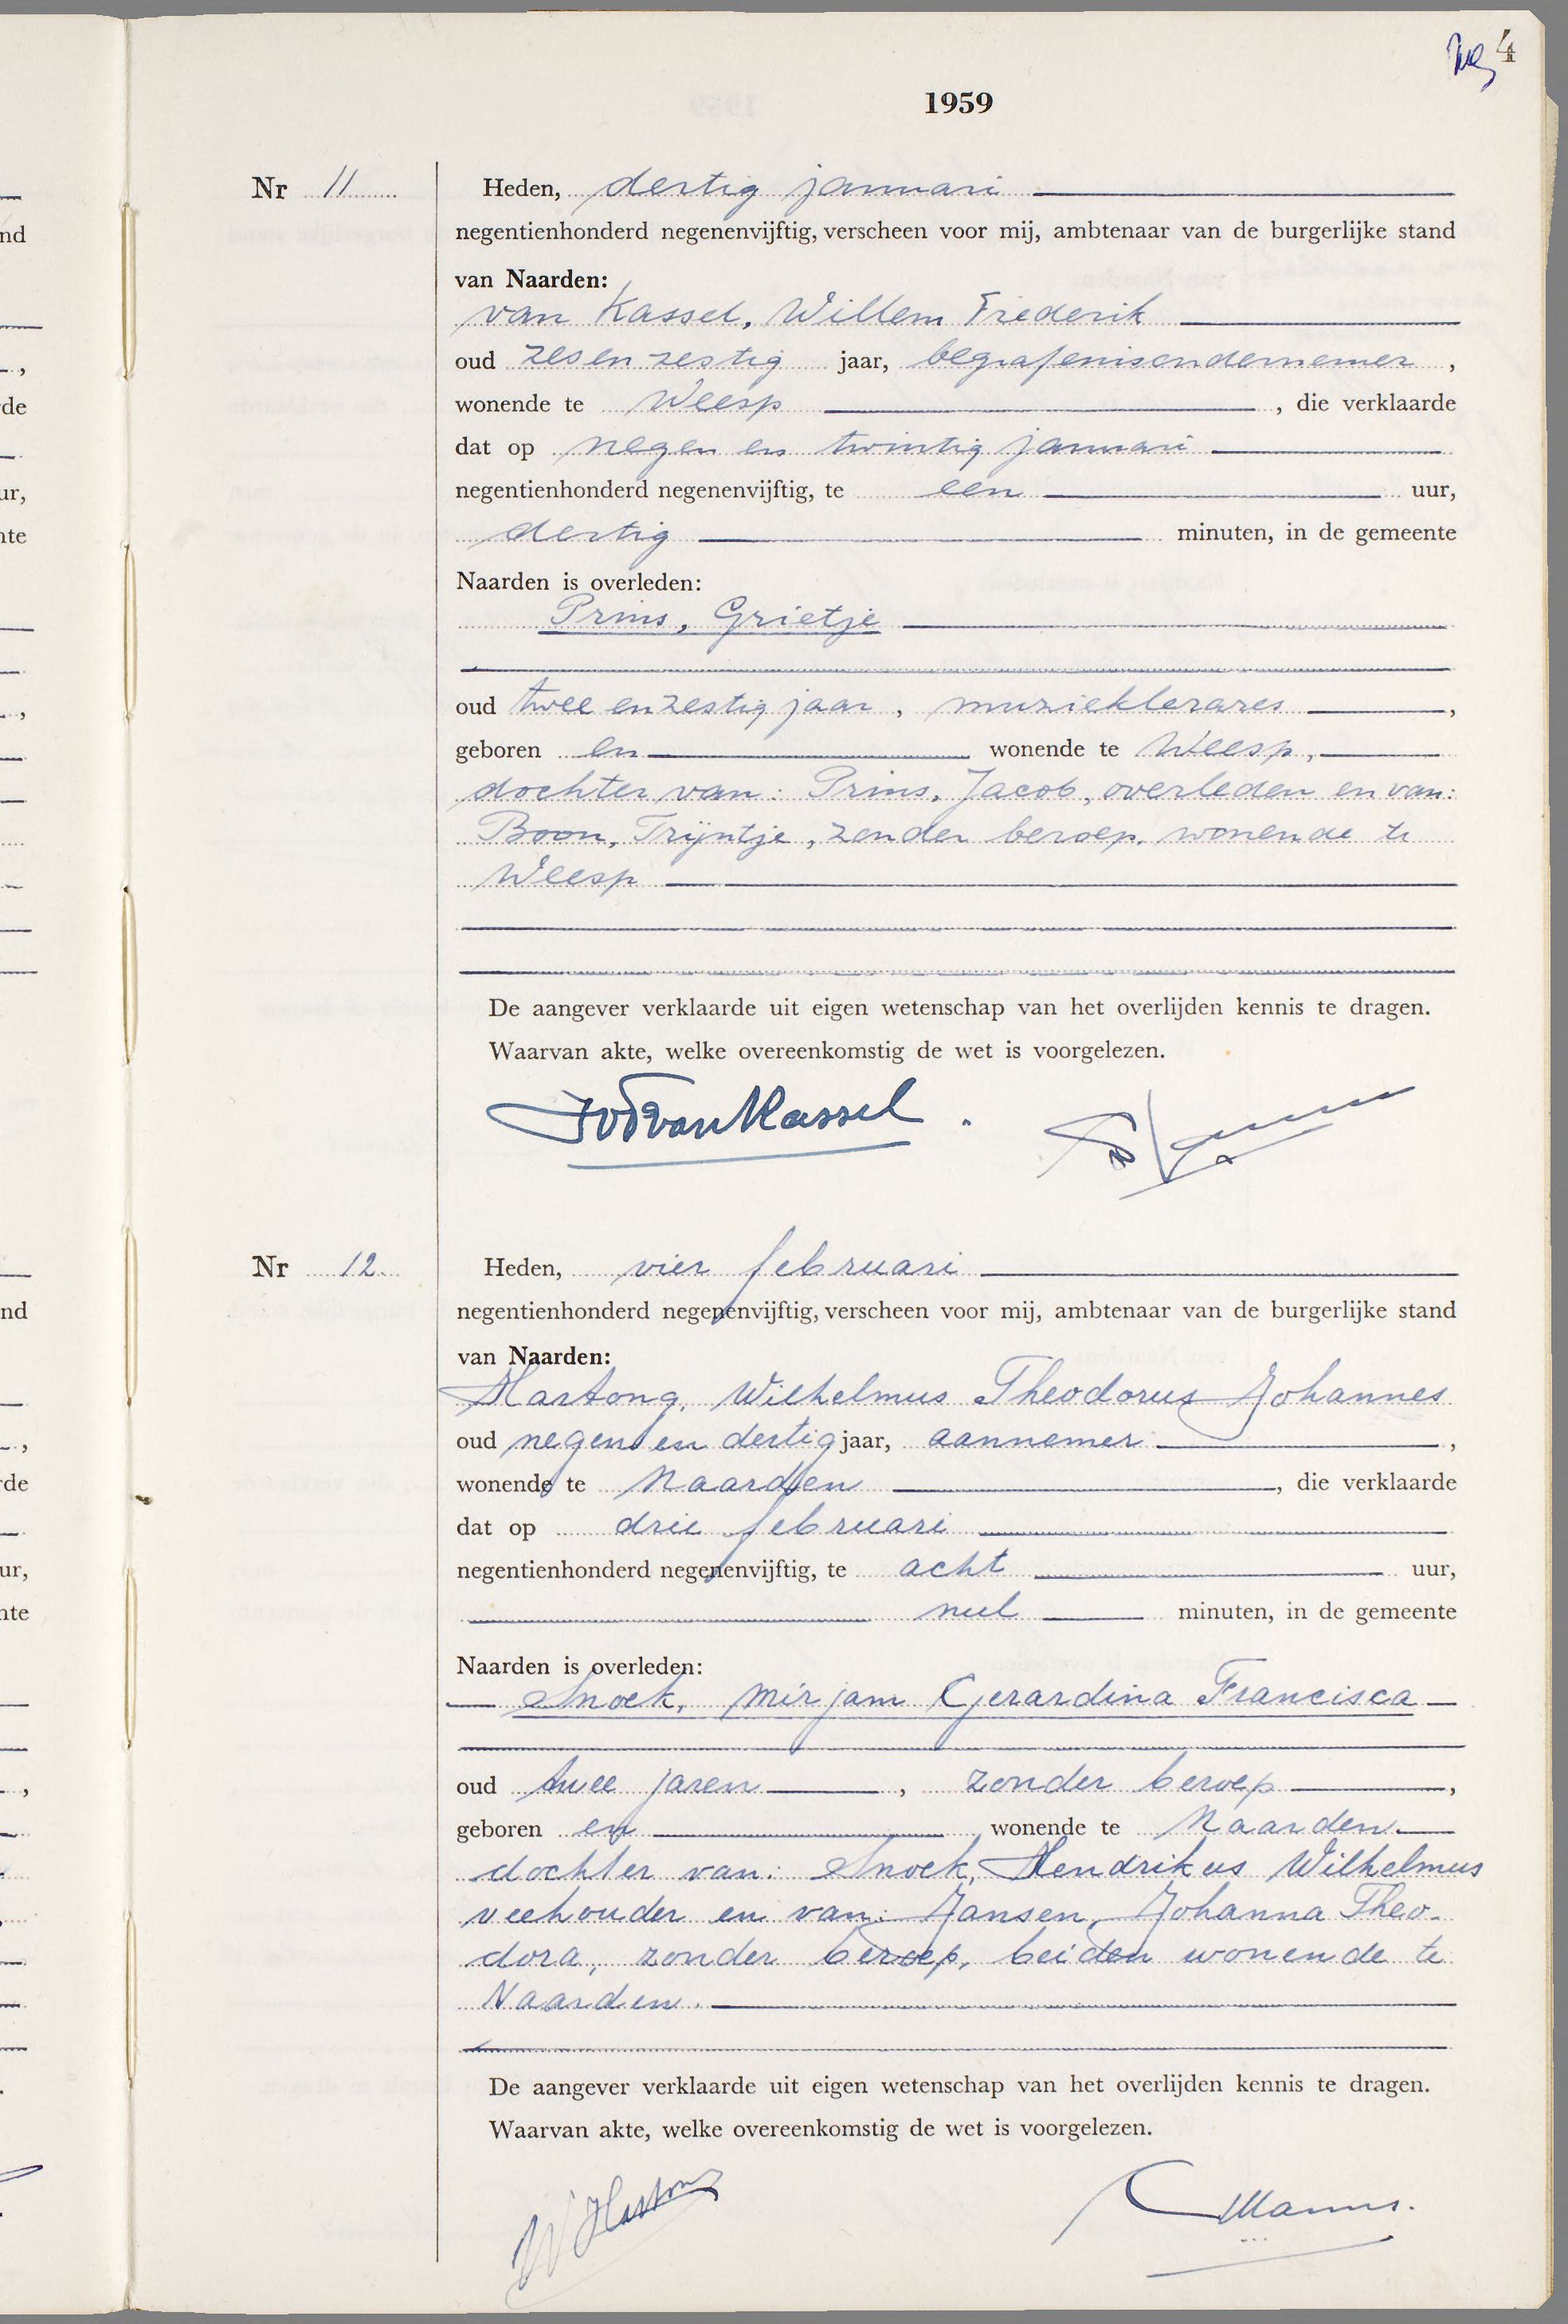 4
1959
Nr 11
Heden, dertig januari
negentienhonderd negenenvijftig, verscheen voor mij, ambtenaar van de burgerlijke stand
van Naarden:
van Kassel, Willem Frederik
oud zes en zestig jaar, begrafenisondernemer,
wonende te Weesp, die verklaarde
dat op negen en twintig januari
negentienhonderd negenenvijftig, te een uur,
dertig minuten, in de gemeente
Naarden is overleden:
Prins, Grietje
oud twee en zestig jaar, muzieklerares,
geboren en wonende te Weesp,
dochter van: Prins, Jacob, overleden en van:
Boon, Trijntje, zonder beroep, wonende te
Weesp
De aangever verklaarde uit eigen wetenschap van het overlijden kennis te dragen.
Waarvan akte, welke overeenkomstig de wet is voorgelezen.
WFvanKassel.
Nr 12.
Heden, vier februari
negentienhonderd negenenvijftig, verscheen voor mij, ambtenaar van de burgerlijke stand
van Naarden:
Hartong, Wilhelmus Theodorus Johannes
oud negen en dertig jaar, aannemer,
wonende te Naarden, die verklaarde
dat op drie februari
negentienhonderd negenenvijftig, te acht uur,
nul minuten, in de gemeente
Naarden is overleden:
Snoek, Mirjam Gerardina Francisca
oud twee jaren, zonder beroep,
geboren en wonende te Naarden
dochter van: Snoek, Hendrikus Wilhelmus
veehouder en van: Jansen, Johanna Theo-
dora, zonder beroep, beiden wonende te
Naarden.
De aangever verklaarde uit eigen wetenschap van het overlijden kennis te dragen.
Waarvan akte, welke overeenkomstig de wet is voorgelezen.
W Hartong